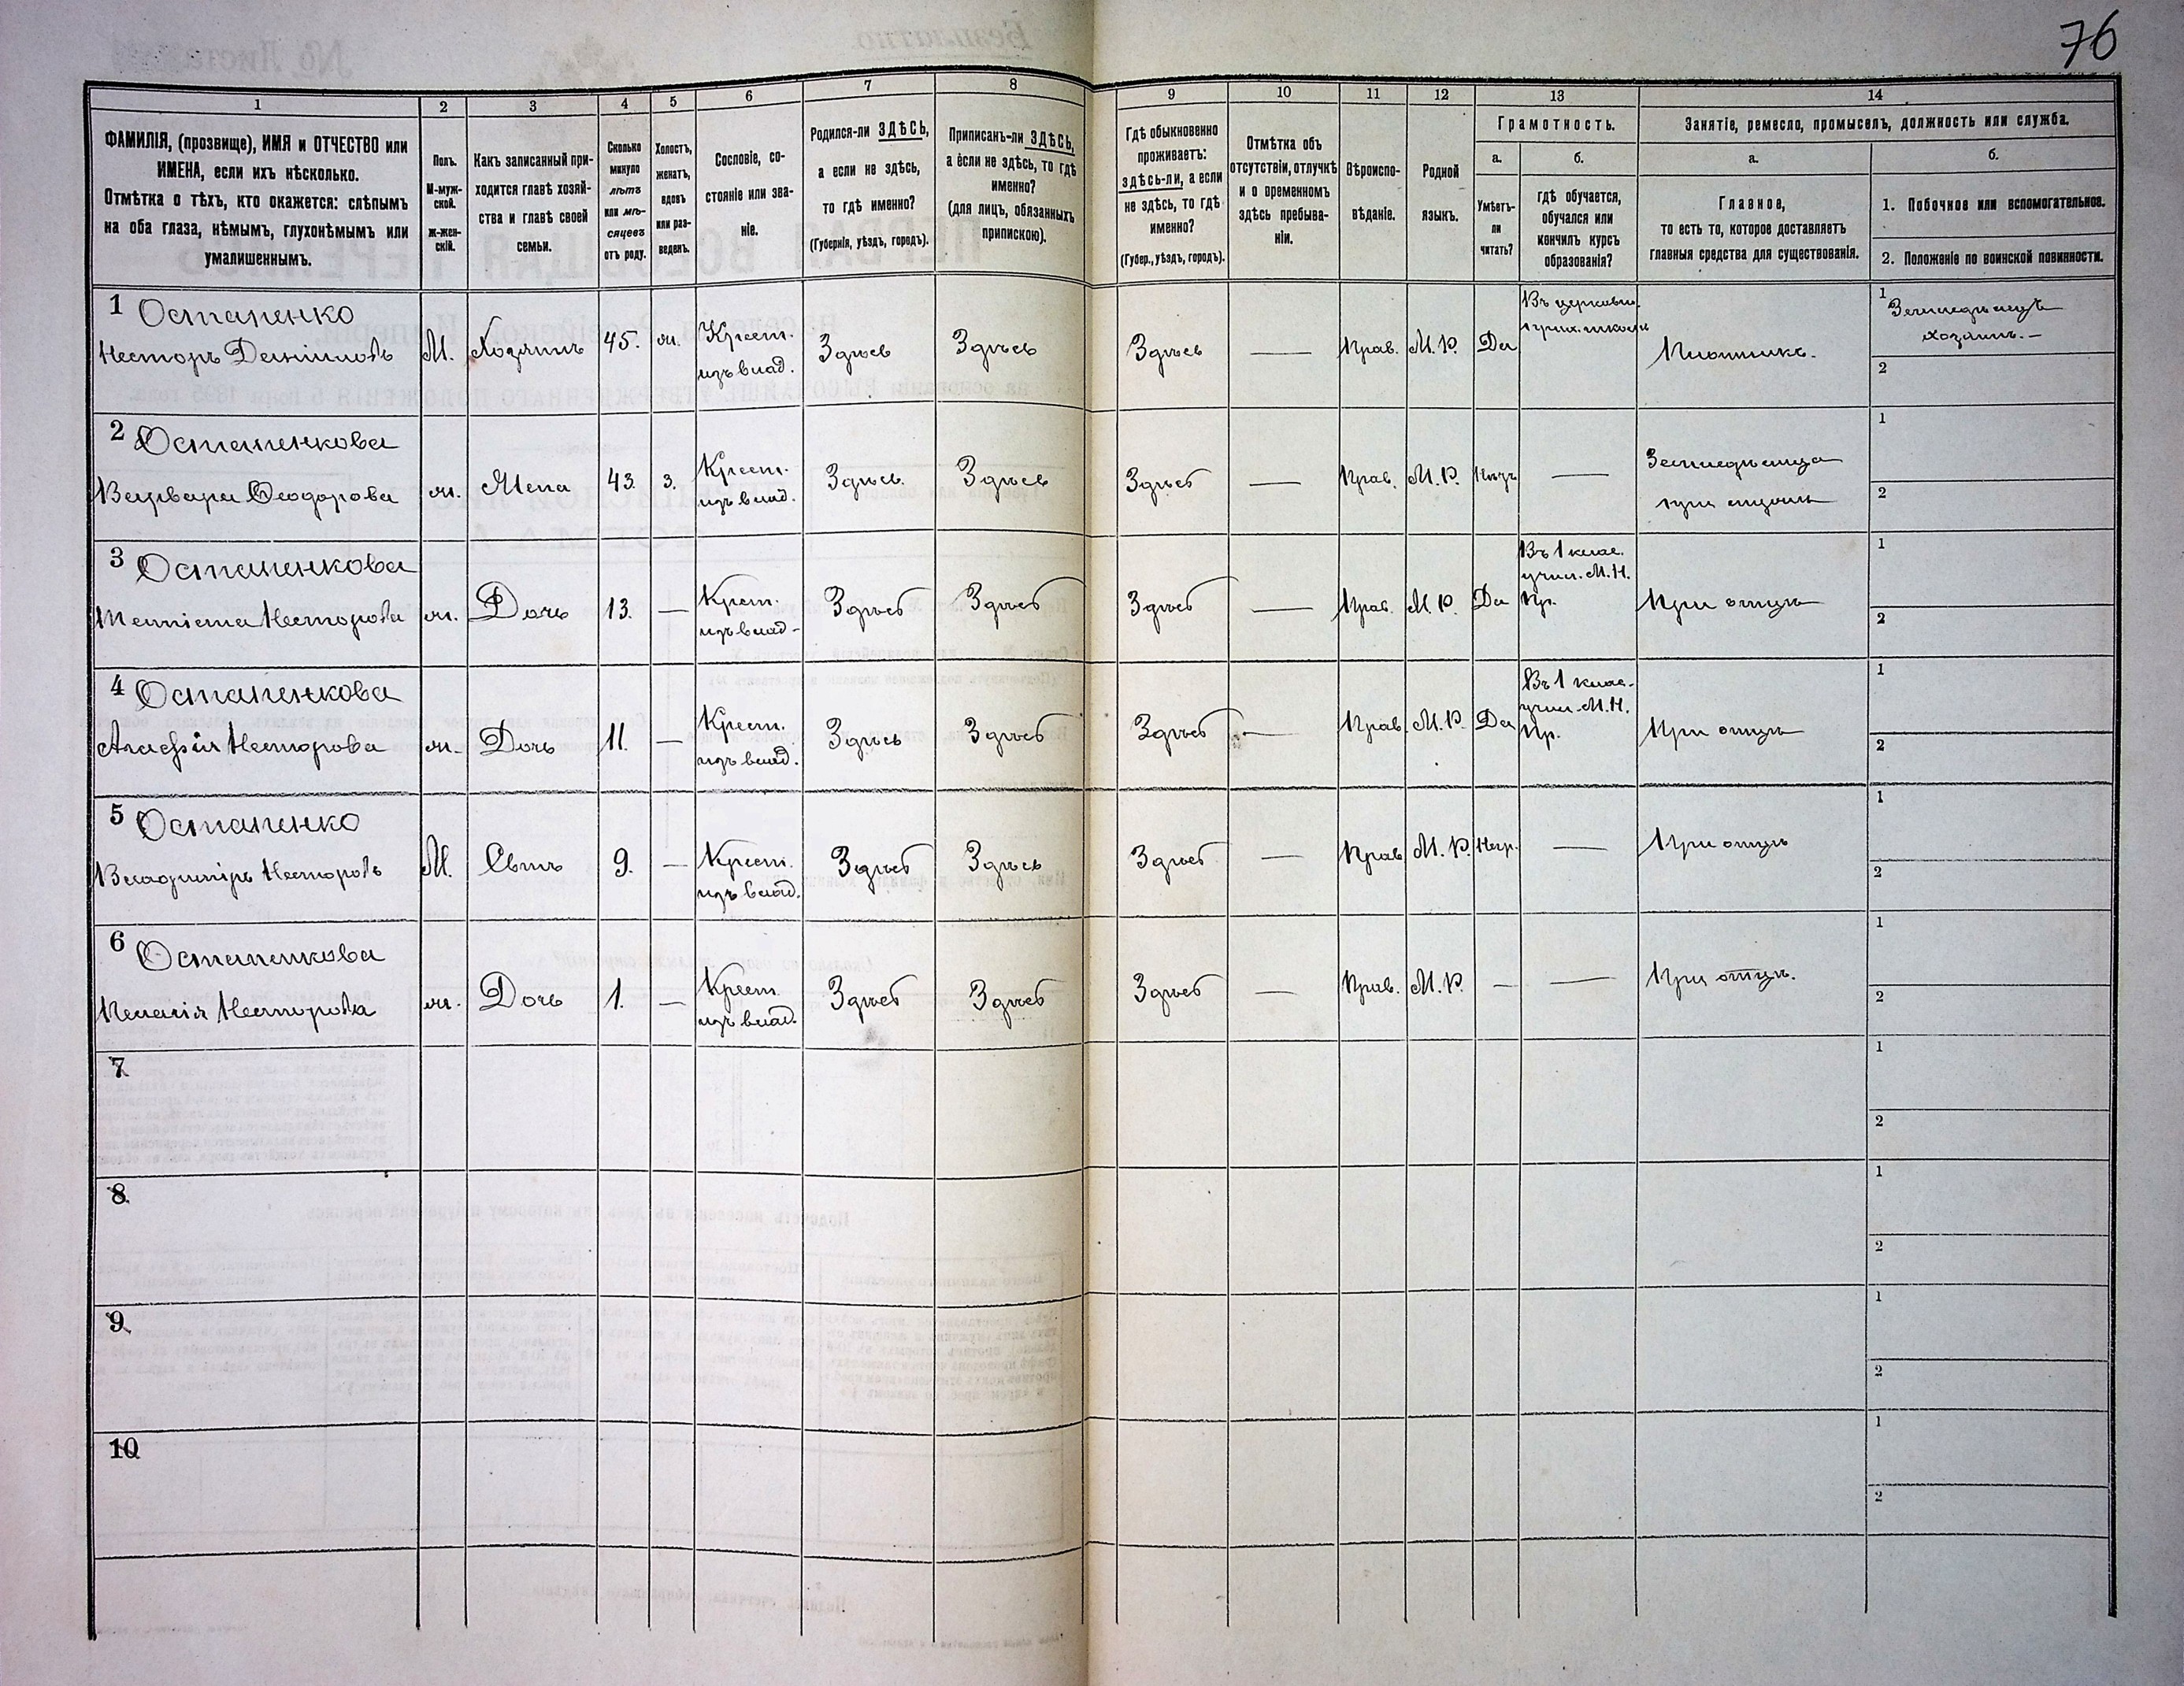 76
1
2
3
4
5
6
7
8
9
10
11
12
13
14
ФАМИЛІЯ, (прозвище), ИМЯ и ОТЧЕСТВО или
ИМЕНА, если ихъ нѣсколько.
Отмѣтка о тѣхъ, кто окажется: слѣпымъ
на оба глаза, нѣмымъ, глухонѣмымъ или
умалишеннымъ.
Полъ.
М-муж-
ской.
ж-жен-
скій.
Какъ записанный при-
ходится главѣ хозяй-
ства и главѣ своей
семьи.
Сколько
минуло
лѣтъ
или мѣ-
сяцевъ
отъ роду.
Холостъ,
женатъ,
вдовъ
или раз-
веденъ.
Сословіе, со-
стояніе или зва-
ніе.
Родился-ли ЗДѢСЬ,
а если не здѣсь,
то гдѣ именно?
(Губернія, уѣздъ, городъ).
Приписанъ-ли ЗДѢСЬ,
а если не здѣсь, то гдѣ
именно?
(для лицъ, обязанныхъ
припискою).
Гдѣ обыкновенно
проживаетъ:
здѣсь-ли, а если
не здѣсь, то гдѣ
именно?
(Губер., уѣздъ, городъ).
Отмѣтка объ
отсутствіи, отлучкѣ
и о временномъ
здѣсь пребыва-
ніи.
Вѣроиспо-
вѣданіе.
Родной
языкъ.
Грамотность.
а.
Умѣетъ-
ли
читать?
б.
гдѣ обучается,
обучался или
кончилъ курсъ
образованія?
Занятіе, ремесло, промыселъ, должность или служба.
а.
Главное,
то есть то, которое доставляетъ
главныя средства для существованія.
б.
1. Побочное или вспомогательное.
2. Положеніе по воинской повинности.
1 Остапенко
Несторъ Даніиловъ
М.
Хозяинъ
45.
ж.
Крест.
изъ влад.
Здѣсь
Здѣсь
Здѣсь
—
Прав.
М. Р.
Да
Въ церковно.
Плотникъ.
1 Земледѣлецъ
хозяинъ. —
2
2 Остапенкова
Варвара Ѳеодорова
ж.
Жена
43.
з.
Крест.
изъ влад.
Здѣсь.
Здѣсь
Здѣсь
—
Прав.
М. Р.
—
Земледѣлица
1
2
3 Остапенкова
Несторова
ж.
Дочь
13.
—
Крест.
изъ влад-
Здѣсь
Здѣсь
Здѣсь
—
Прав.
М. Р.
Да
Въ 1 клас.
учил. М. Н.
Пр.
При отцѣ
1
2
4 Остапенкова
Агафія Несторова
ж.
Дочь
11.
—
Крест.
изъ влад.
Здѣсь
Здѣсь
Здѣсь
—
Прав.
М. Р.
Да
Въ 1 клас.
учил. М. Н.
Пр.
При отцѣ
1
2
5 Остапенко
Владиміръ Несторовъ
М.
Сынъ
9.
—
Крест.
изъ влад.
Здѣсь
Здѣсь
Здѣсь
—
Прав
М. Р.
—
При отцѣ
1
2
6 Остапенкова
Пелагія Несторова
ж.
Дочь
1.
—
Крест.
изъ влад.
Здѣсь
Здѣсь
Здѣсь
—
Прав.
М. Р.
—
—
При отцѣ.
1
2
7
1
2
8
1
2
9
1
2
10
1
2